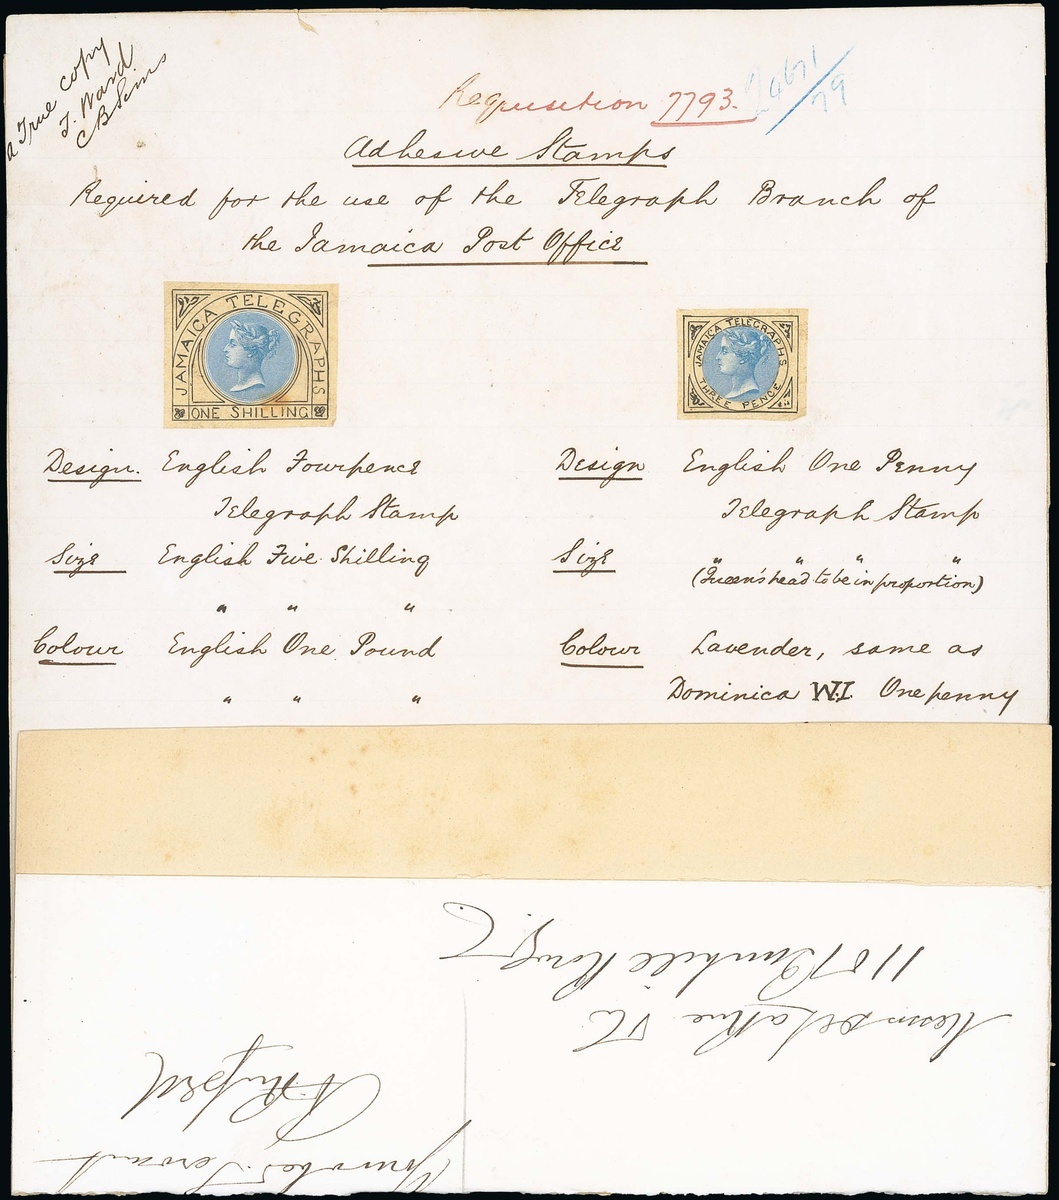 a True copy
T. Ward
CB Sims
Requisition 7793.
24671/79
Adhesive Stamps
Required for the use of the Telegraph Branch of
the Jamaica Post Office
JAMAICA TELEGRAPHS
ONE SHILLING
JAMAICA TELEGRAPHS
THREE PENCE
Design. English Fourpence
Telegraph Stamp
Size English Five Shilling
" " "
Colour English One Pound
" " "
Design English One Penny
Telegraph Stamp
Size " " " "
(Queen's head to be in proportion)
Colour Lavender, same as
Dominica W.I. One penny
Servant
De La Rue & Co
110 Bunhill Row
E.C.